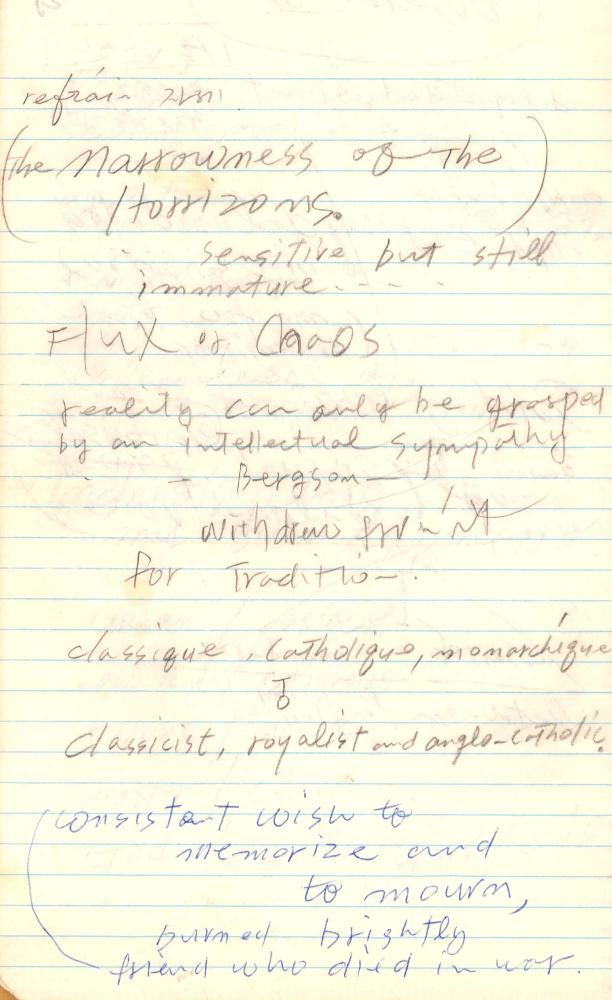 refrain
(The Narrowness of The
Horrizons.)
sensitive but still
immature - - - -
Flux or Chaos
reality can only be grasped
by an intellectual sympathy
- Bergson —
withdrew from it
for Tradition.
classique, Catholique, monarchique
To
classicist, royalist and anglo-catholic.
(consistant wish to
memorize and
to mourn,
burned brightly
friend who died in war.